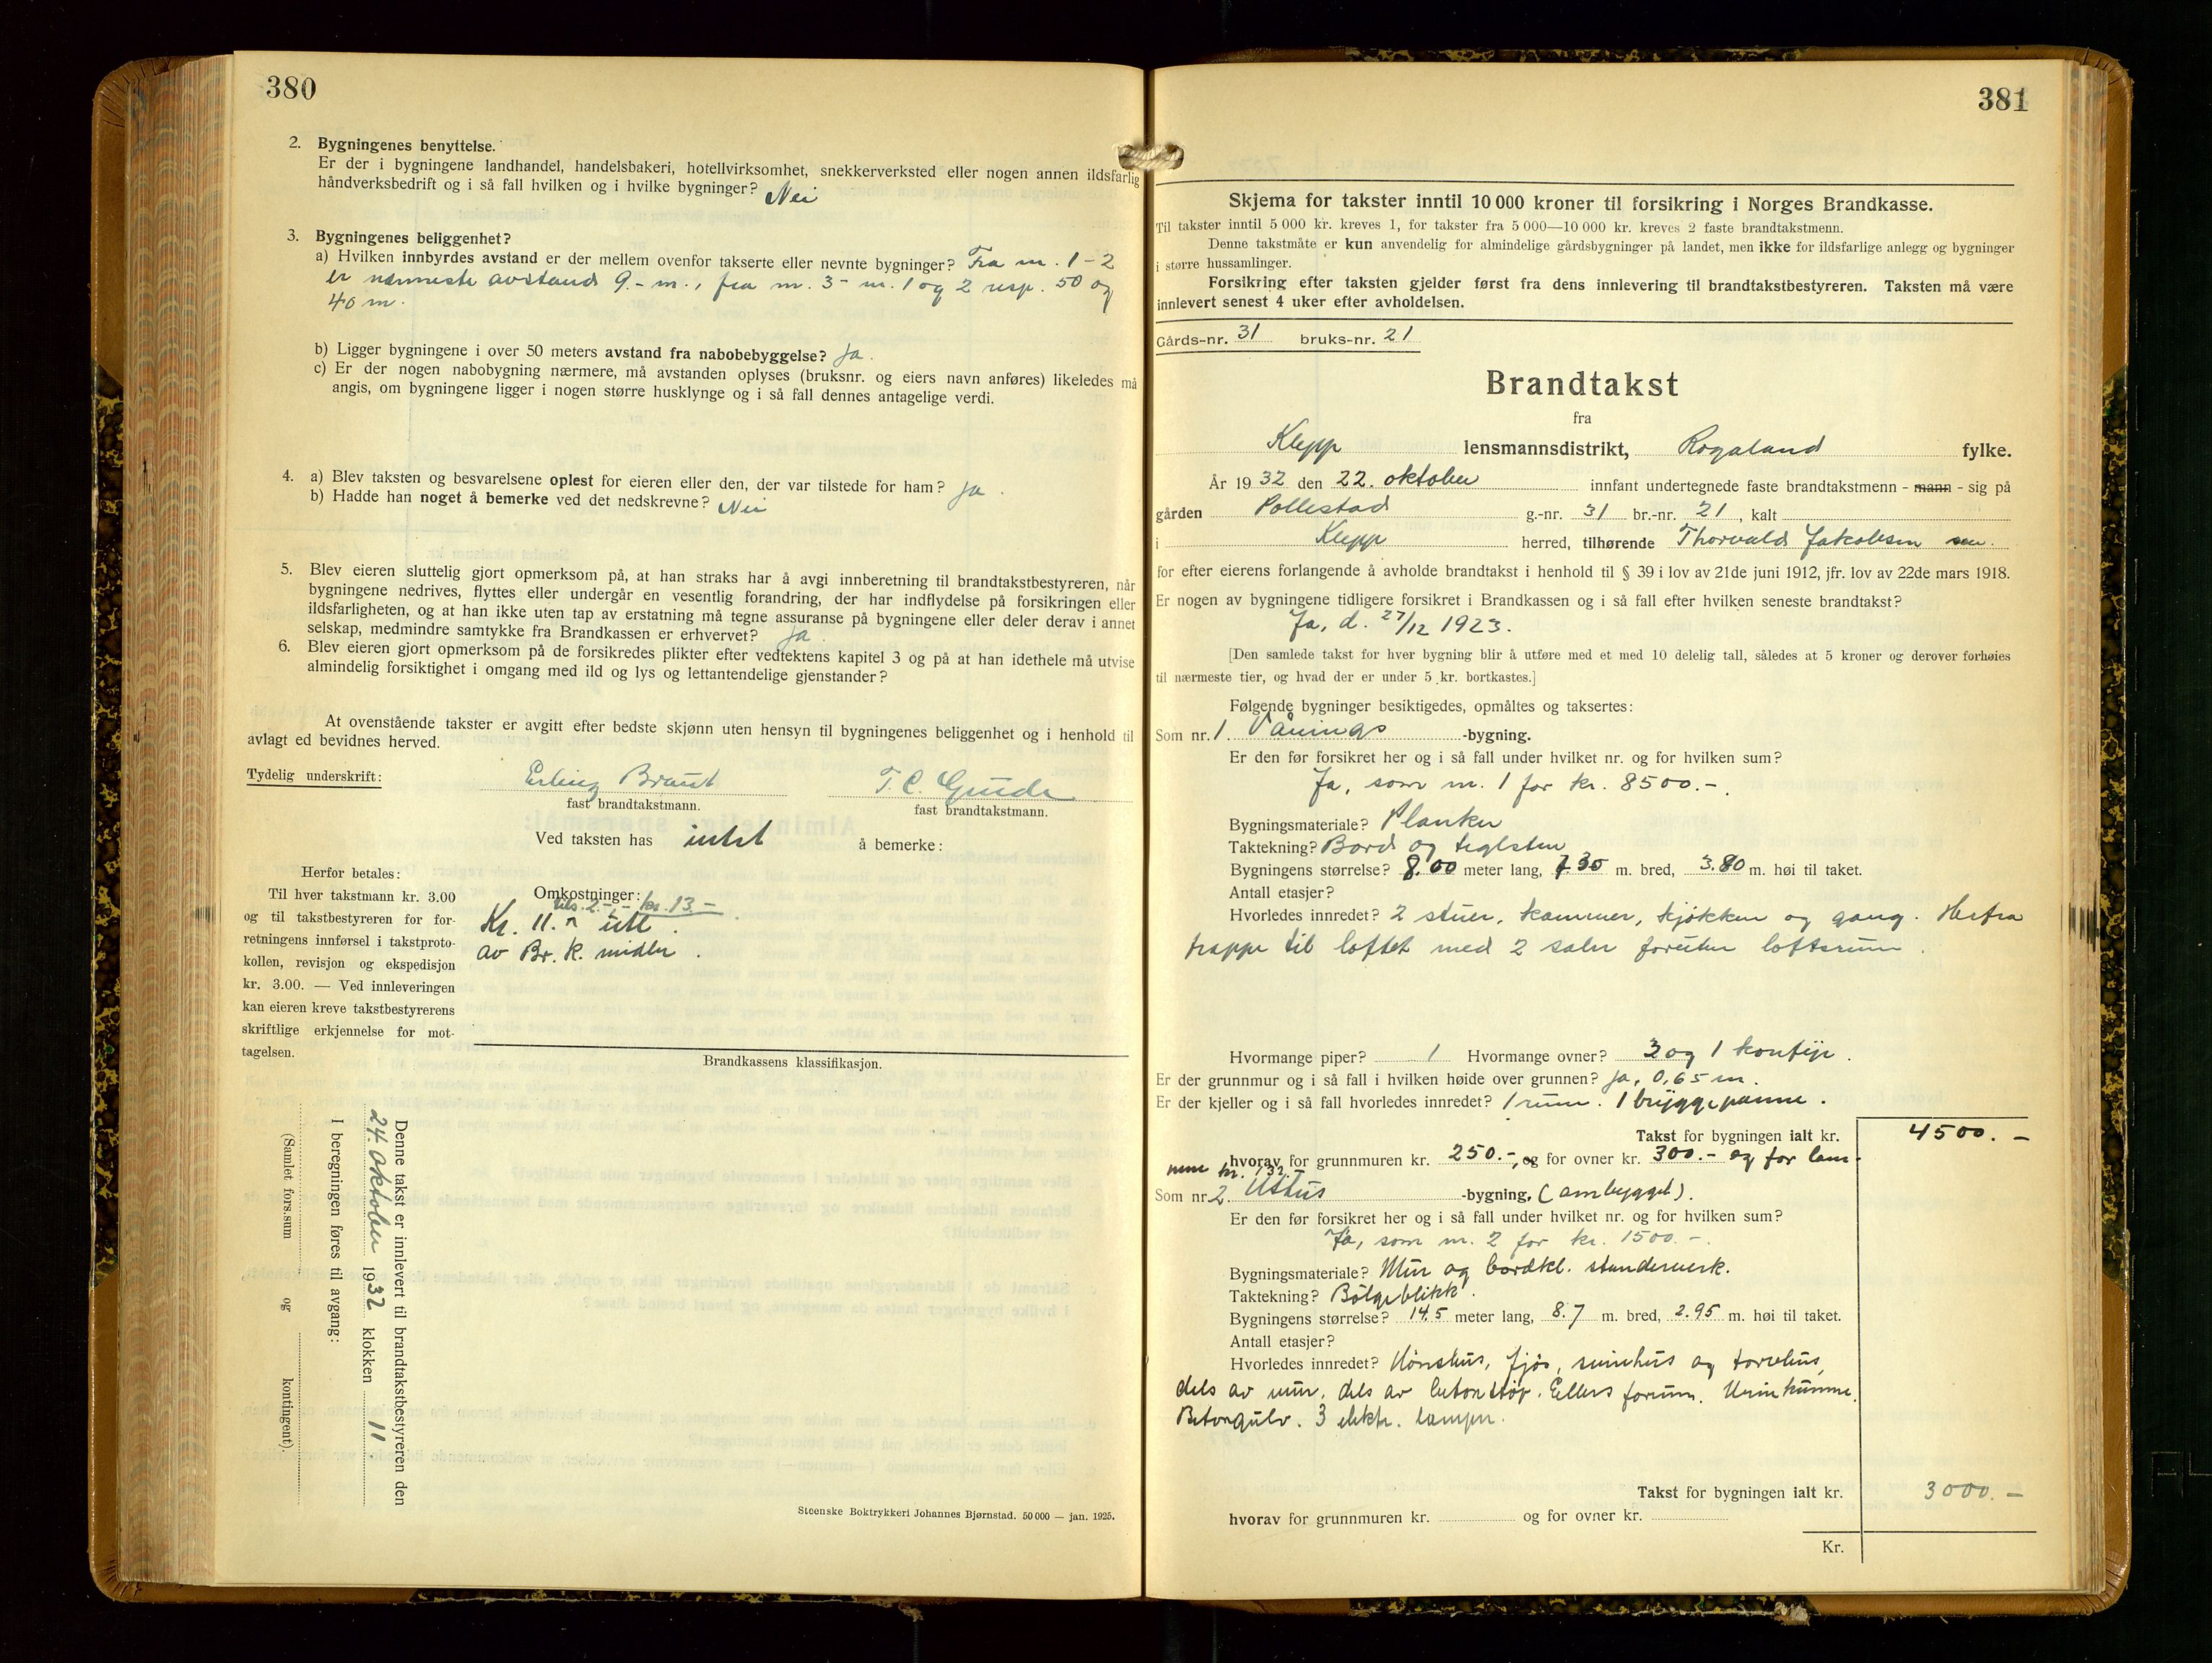 380
2. Bygningenes benyttelse.
Er der i bygningene landhandel, handelsbakeri, hotellvirksomhet, snekkerverksted eller nogen annen ildsfarlig
håndverksbedrift og i så fall hvilken og i hvilke bygninger? Nei
3. Bygningenes beliggenhet?
a) Hvilken innbyrdes avstand er der mellem ovenfor takserte eller nevnte bygninger? Fra nr. 1-2
er nærmeste avstand 9.- m., fra nr. 3- nr. 1 og 2 resp. 50 og
40 m.
b) Ligger bygningene i over 50 meters avstand fra nabobebyggelse? Ja.
c) Er der nogen nabobygning nærmere, må avstanden oplyses (bruksnr. og eiers navn anføres) likeledes må
angis, om bygningene ligger i nogen større husklynge og i så fall dennes antagelige verdi.
4. a) Blev taksten og besvarelsene oplest for eieren eller den, der var tilstede for ham? Ja.
b) Hadde han noget å bemerke ved det nedskrevne? Nei
5. Blev eieren sluttelig gjort opmerksom på, at han straks har å avgi innberetning til brandtakstbestyreren, når
bygningene nedrives, flyttes eller undergår en vesentlig forandring, der har indflydelse på forsikringen eller
ildsfarligheten, og at han ikke uten tap av erstatning må tegne assuranse på bygningene eller deler derav i annet
selskap, medmindre samtykke fra Brandkassen er erhvervet? Ja.
6. Blev eieren gjort opmerksom på de forsikredes plikter efter vedtektens kapitel 3 og på at han idethele må utvise
almindelig forsiktighet i omgang med ild og lys og lettantendelige gjenstander?
At ovenstående takster er avgitt efter bedste skjønn uten hensyn til bygningenes beliggenhet og i henhold til
avlagt ed bevidnes herved.
Tydelig underskrift: Erling Braut T. C. Gruda
fast brandtakstmann. fast brandtakstmann.
Ved taksten has intet å bemerke:
Herfor betales:
Til hver takstmann kr. 3.00
og til takstbestyreren for for-
retningens innførsel i takstproto-
kollen, revisjon og ekspedisjon
kr. 3.00. — Ved innleveringen
kan eieren kreve takstbestyrerens
skriftlige erkjennelse for mot-
tagelsen.
Omkostninger:
2.- kr. 13.-
Kr. 11.- utl.
av Br. k. midler.
Brandkassens klassifikasjon.
Denne takst er innlevert til brandtakstbestyreren den
24. oktober 1932 klokken 11
I beregningen føres til avgang:
(Samlet fors.sum og kontingent).
Steenske Boktrykkeri Johannes Bjørnstad. 50 000 — jan. 1925.
381
Skjema for takster inntil 10 000 kroner til forsikring i Norges Brandkasse.
Til takster inntil 5 000 kr. kreves 1, for takster fra 5 000—10 000 kr. kreves 2 faste brandtakstmenn.
Denne takstmåte er kun anvendelig for almindelige gårdsbygninger på landet, men ikke for ildsfarlige anlegg og bygninger
i større hussamlinger.
Forsikring efter taksten gjelder først fra dens innlevering til brandtakstbestyreren. Taksten må være
innlevert senest 4 uker efter avholdelsen.
Gårds-nr. 31 bruks-nr. 21
Brandtakst
fra
Klepp lensmannsdistrikt, Rogaland fylke.
År 1932 den 22. oktober innfant undertegnede faste brandtakstmenn - mann - sig på
gården Pollestad g.-nr. 31 br.-nr. 21, kalt
i Klepp herred, tilhørende Thorvald Jakobsen sen.
for efter eierens forlangende å avholde brandtakst i henhold til § 39 i lov av 21de juni 1912, jfr. lov av 22de mars 1918.
Er nogen av bygningene tidligere forsikret i Brandkassen og i så fall efter hvilken seneste brandtakst?
Ja, d. 27/12 1923.
[Den samlede takst for hver bygning blir å utføre med et med 10 delelig tall, således at 5 kroner og derover forhøies
til nærmeste tier, og hvad der er under 5 kr. bortkastes.]
Følgende bygninger besiktigedes, opmåltes og taksertes:
Som nr. 1. Vånings-bygning.
Er den før forsikret her og i så fall under hvilket nr. og for hvilken sum?
Ja, som nr. 1 for kr. 8500.-.
Bygningsmateriale? Planker
Taktekning? Bord og teglsten
Bygningens størrelse? 8.00 meter lang, 7.30 m. bred, 3.80 m. høi til taket.
Antall etasjer?
Hvorledes innredet? 2 stuer, kammer, kjøkken og gang. Herfra
trappe til loftet med 2 saler foruten loftsrum.
Hvormange piper? 1 Hvormange ovner? 3 og 1 komfyr.
Er der grunnmur og i så fall i hvilken høide over grunnen? Ja, 0,65 m.
Er der kjeller og i så fall hvorledes innredet? 1 rum. 1 bryggepanne.
Takst for bygningen ialt kr. 4500.-
hvorav for grunnmuren kr. 250.-, og for ovner kr. 300.- og for lem-
men kr. 132.-
Som nr. 2. Uthus-bygning. (ombygget).
Er den før forsikret her og i så fall under hvilket nr. og for hvilken sum?
Ja, som nr. 2 for kr. 1500.-.
Bygningsmateriale? Mur og bordkl. stenderverk.
Taktekning? Bølgeblikk.
Bygningens størrelse? 14.5 meter lang, 8.7 m. bred, 2.95 m. høi til taket.
Antall etasjer?
Hvorledes innredet? Hønshus, fjøs, svinehus og torvhus,
dels av mur, dels av betonstøp. Ellers forrum. Urinkumme.
Betongulv. 3 elektr. lamper.
Takst for bygningen ialt kr. 3000.-
hvorav for grunnmuren kr. og for ovner kr.
Kr.